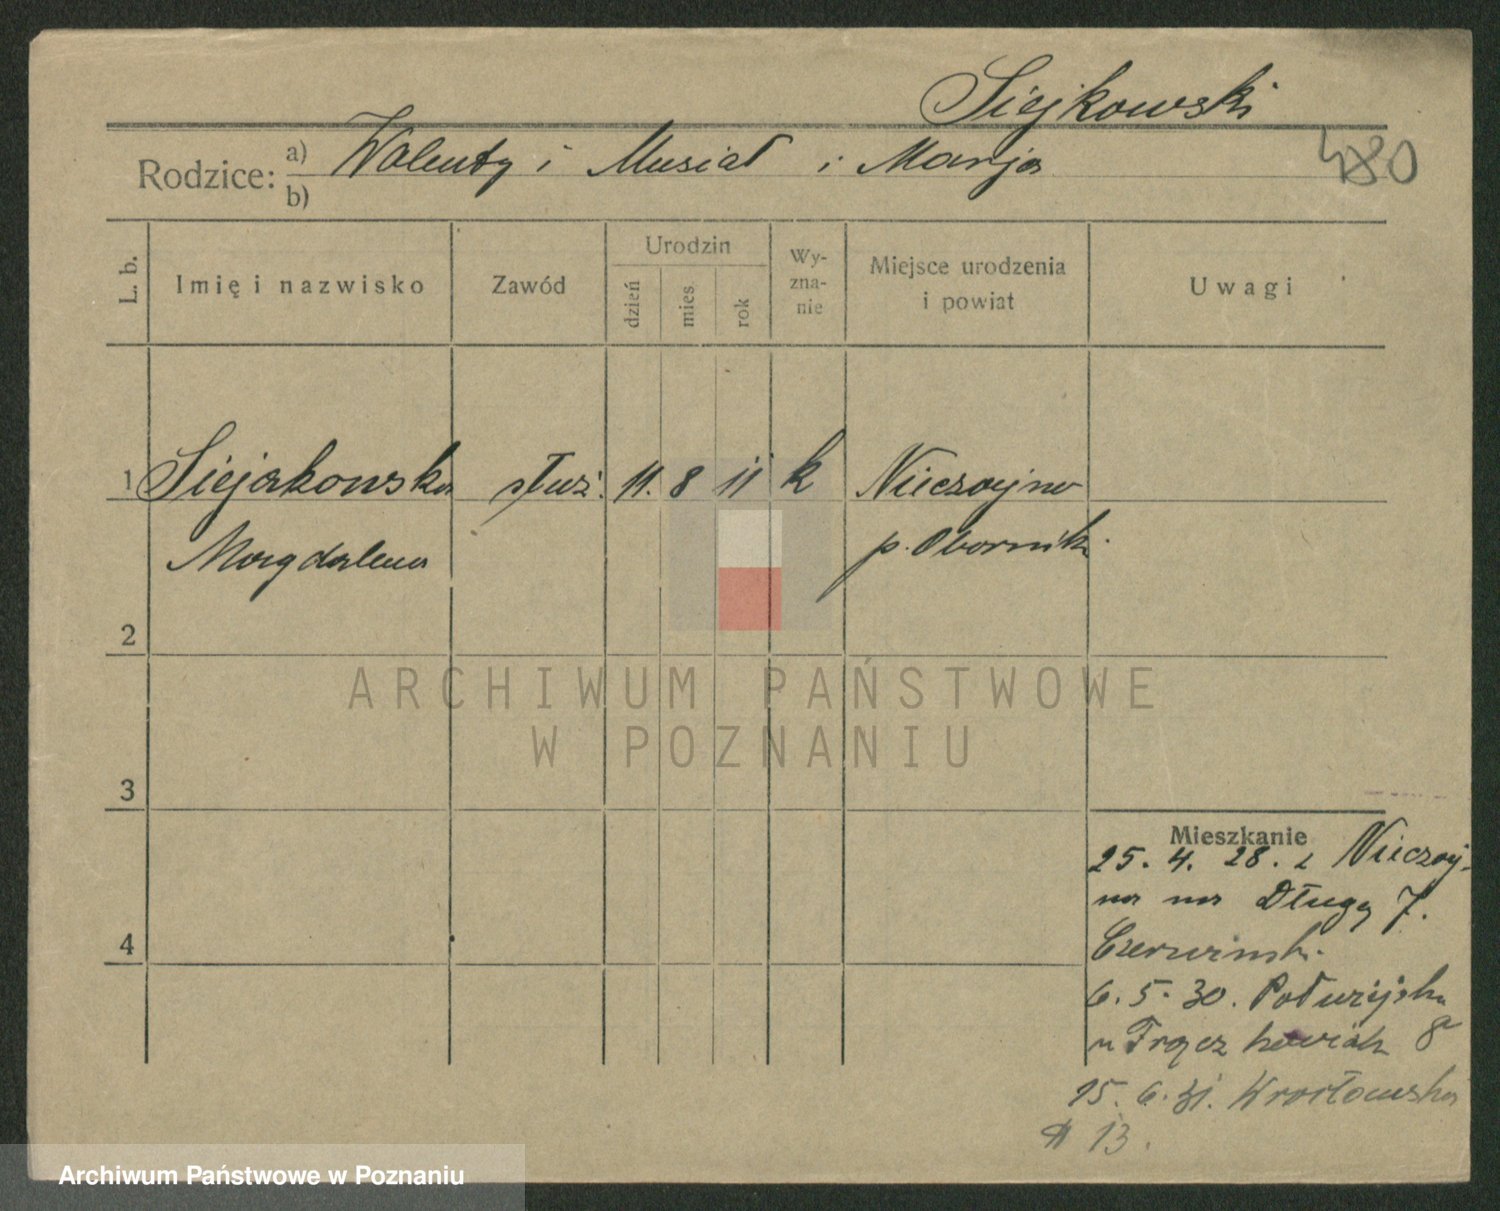 Siejkowski
Rodzice: a) Walenty i Musiał i Marja
b)
480
L. b. Imię i nazwisko Zawód Urodzin dzień mies rok Wy-zna-nie Miejsce urodzenia i powiat Uwagi
1 Siejakowska służ. 11. 8 11 k Nieczajna
Magdalena p. Obornik.
2
ARCHIWUM PAŃSTWOWE
W POZNANIU
3
Mieszkanie
25. 4. 28. z Nieczaj-
na na Długą 7.
4
Czerwinski.
6. 5. 30. Połwiejska
8
15. 6. 31. Wrocławska
13.
Archiwum Państwowe w Poznaniu